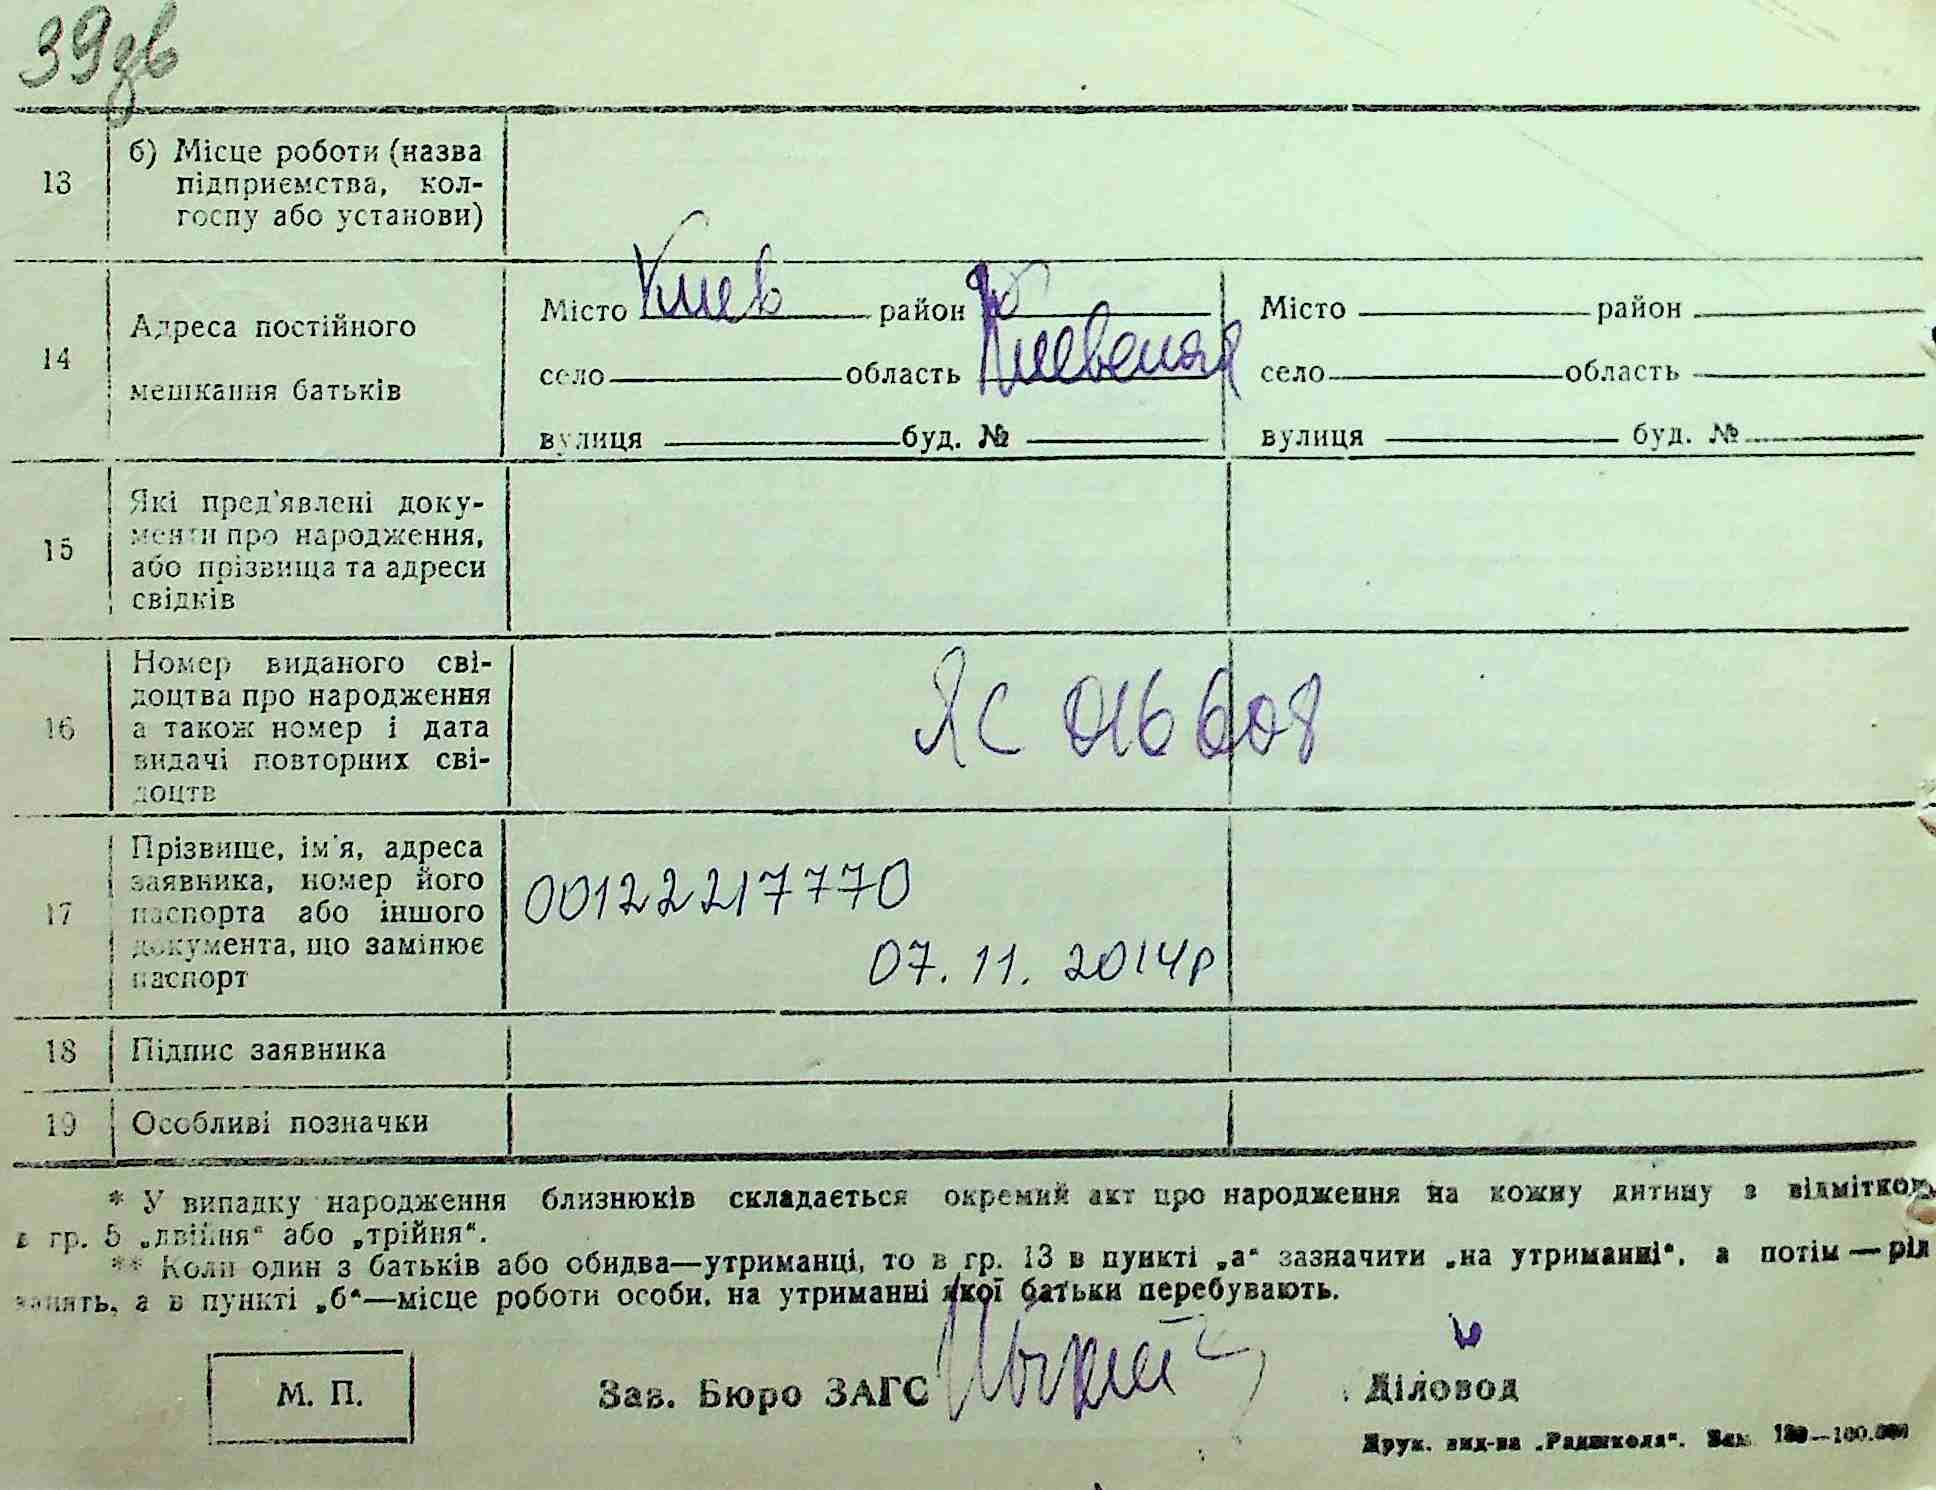 39зв
13 б) Місце роботи (назва
підприємства, кол-
госпу або установи)
14 Адреса постійного
мешкання батьків
Місто Киев район
село область Киевская
вулиця буд. №
Місто район
село область
вулиця буд. №
15 Які пред'явлені доку-
менти про народження,
або прізвища та адреси
свідків
16 Номер виданого сві-
доцтва про народження
а також номер і дата
видачі повторних сві-
доцтв
ЯС 016608
17 Прізвище, ім'я, адреса
заявника, номер його
паспорта або іншого
документа, що замінює
паспорт
00122217770
07.11.2014р
18 Підпис заявника
19 Особливі позначки
* У випадку народження близнюків складається окремий акт про народження на кожну дитину з відміткою
в гр. 5 „двійня“ або „трійня“.
** Коли один з батьків або обидва—утриманці, то в гр. 13 в пункті „а“ зазначити „на утриманні“, а потім — рід
занять, а в пункті „б“—місце роботи особи, на утриманні якої батьки перебувають.
М. П.
Зав. Бюро ЗАГС
Діловод
Друк. вид-ва „Радшкола“. Зам.